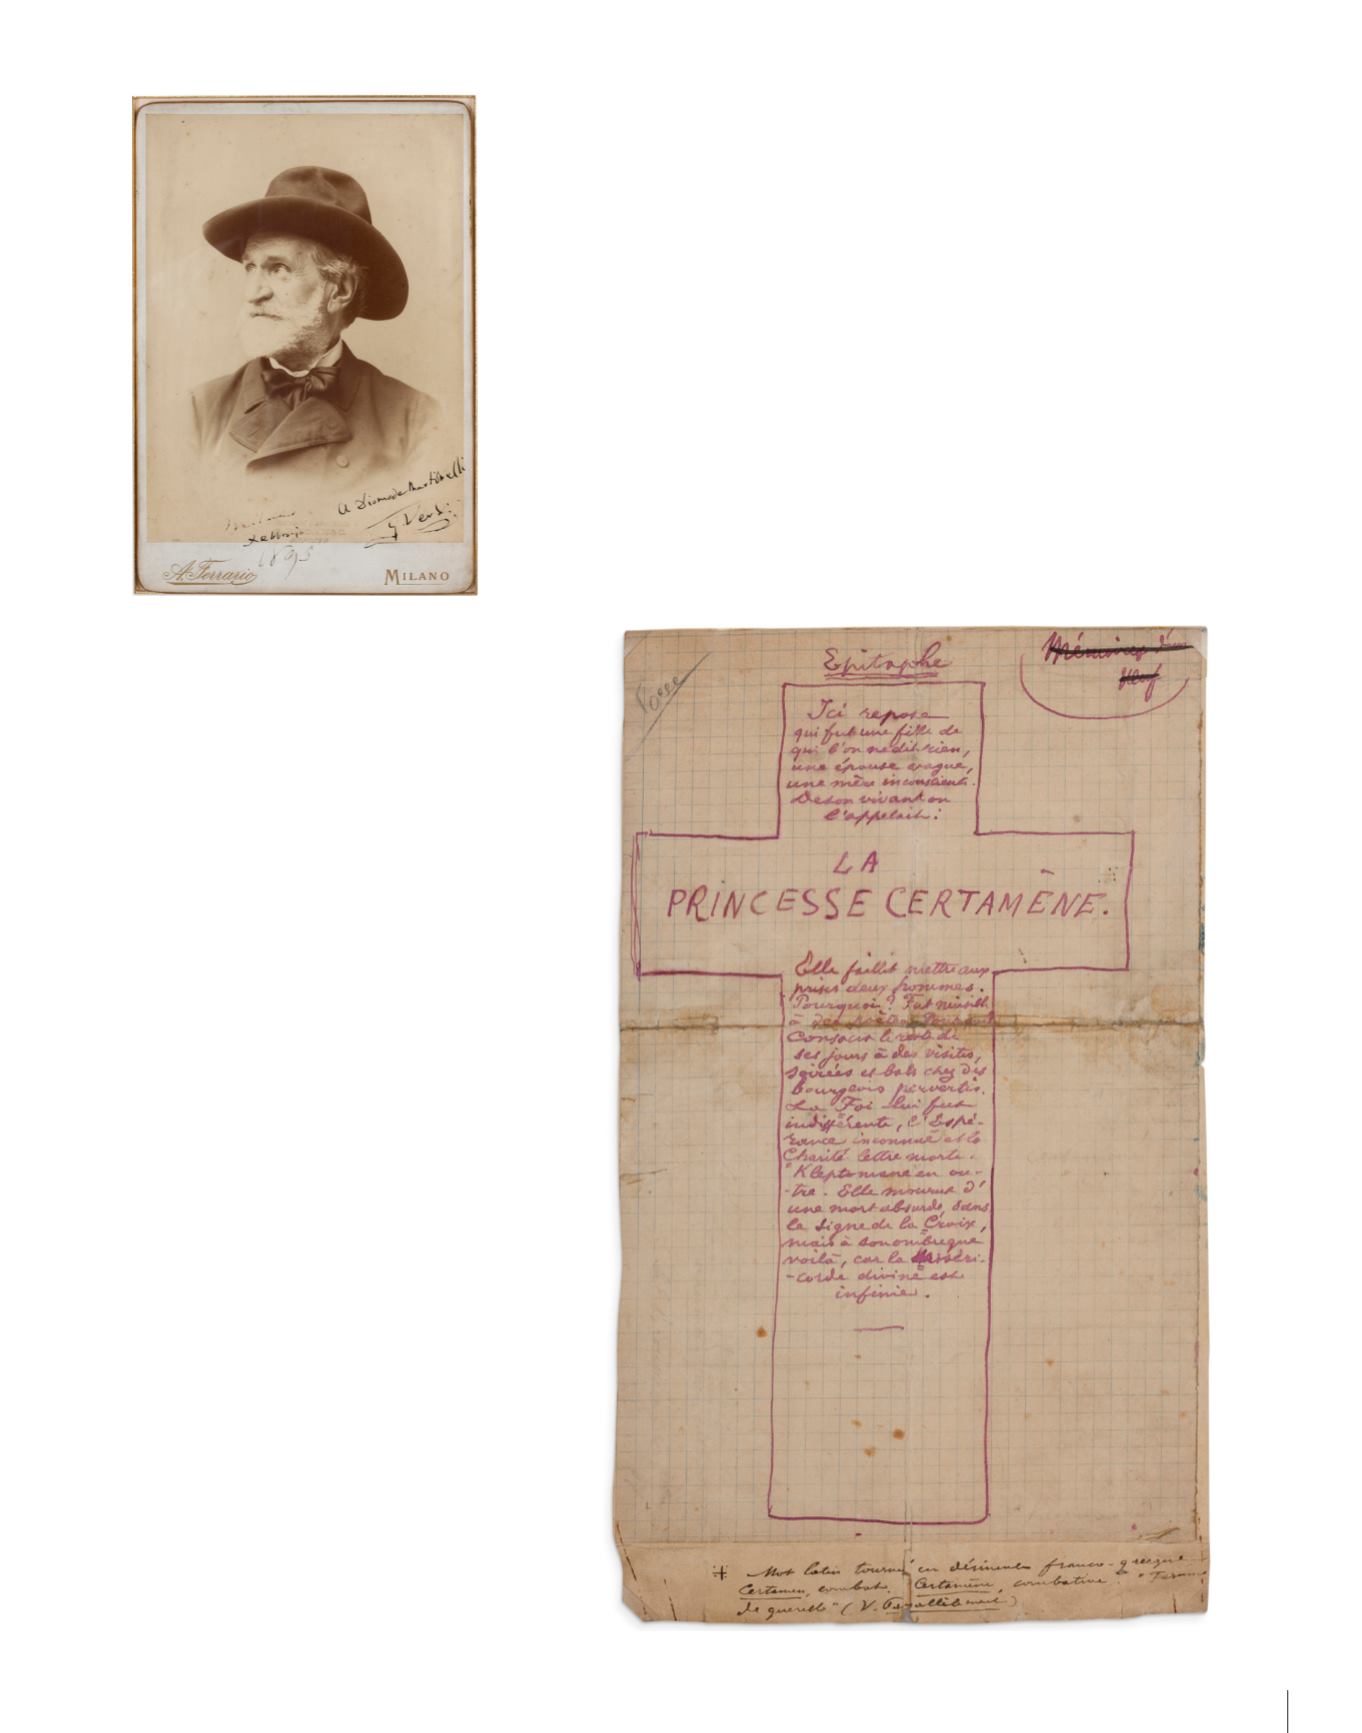 A Diomede
G. Verdi
Milano
1893
A. Ferrario
MILANO
Epitaphe
Mémoires d'un
Veuf
Ici repose
qui fut une fille de
qui l'on ne dit rien,
une épouse vague,
une mère inconsciente.
De son vivant on
l'appelait :
LA
PRINCESSE CERTAMÈNE.
Elle faillit mettre aux
prises deux hommes.
Pourquoi ? Fut nuisible
à des
Consacra le reste de
ses jours à des visites,
soirées et bals chez des
bourgeois pervertis.
La Foi lui fut
indifférente, l'Espé-
rance inconnue et la
Charité lettre morte.
Kleptomane en ou-
-tre. Elle mourut d'
une mort absurde, sans
le Signe de la Croix,
mais à son ombre que
voilà, car la Miséri-
-corde divine est
infinie.
Mot latin tourné en désinence franco-grecque
Certamen, combat. Certamène, combative. "Femme
de querelle" (V. )